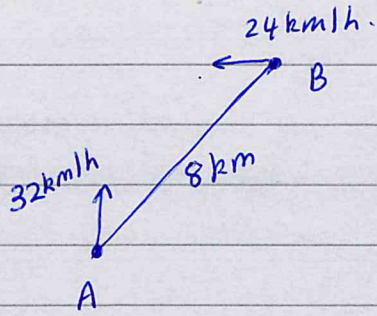 24km/h.
B
32km/h
8km
A